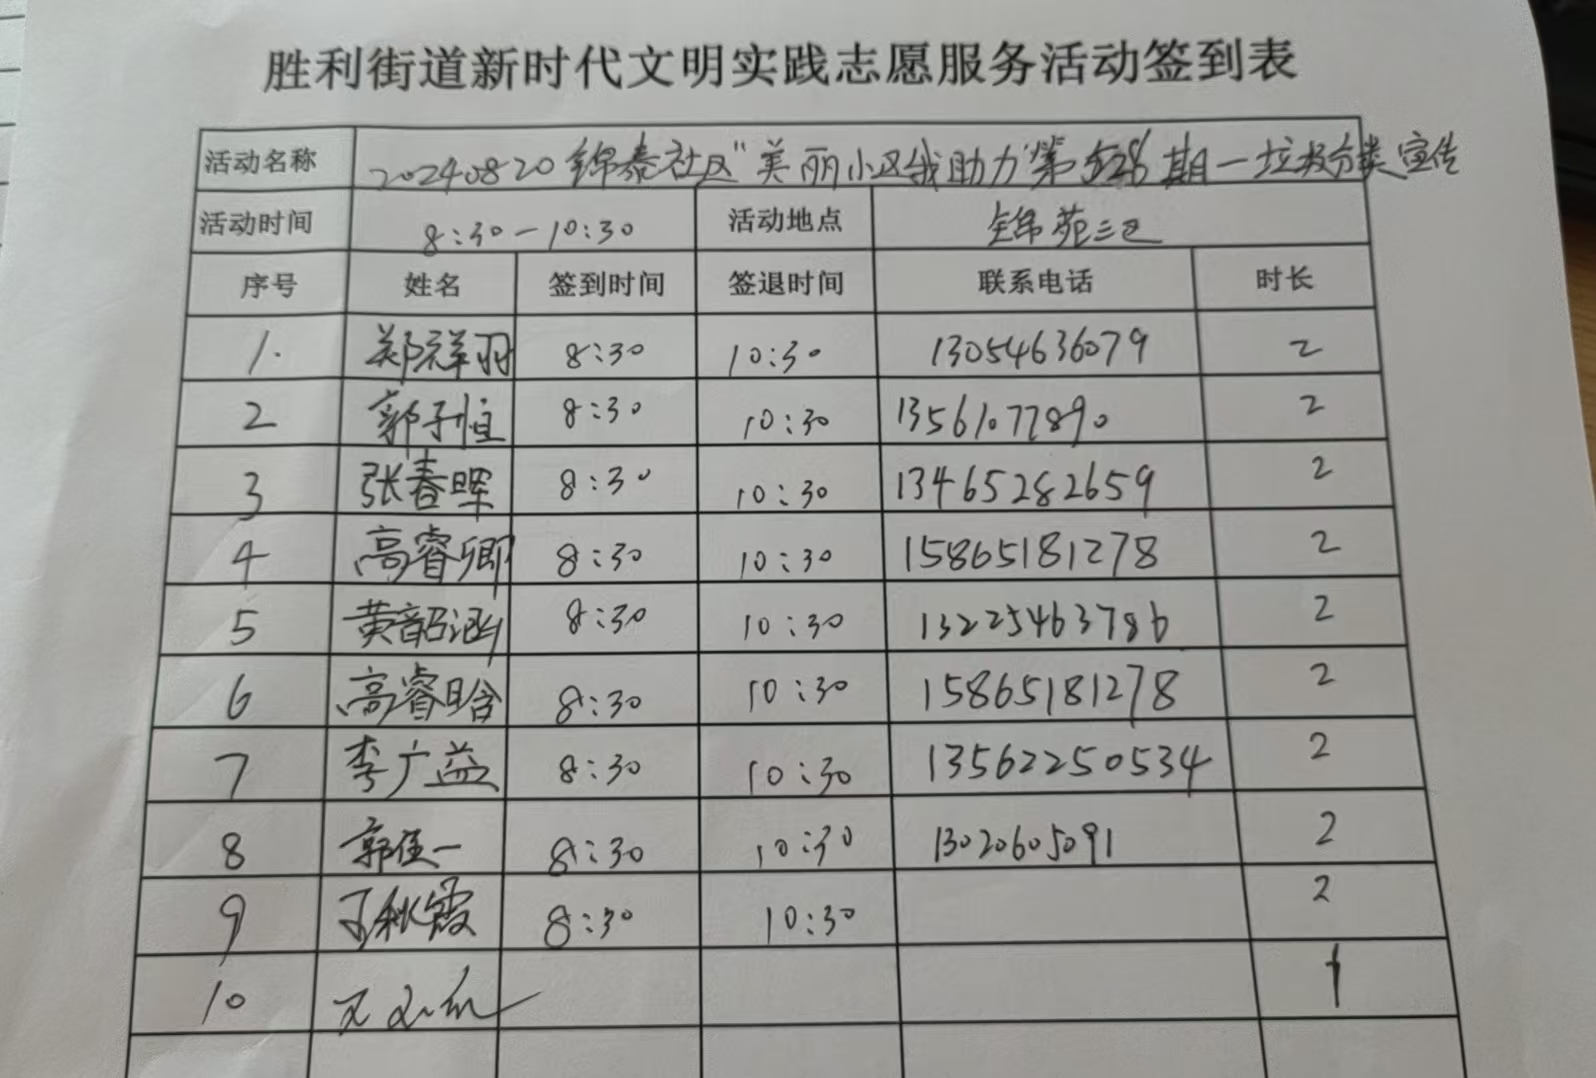 胜利街道新时代文明实践志愿服务活动签到表
活动名称 20240820锦泰社区"美丽小区我助力"第期一垃圾分类宣传
活动时间 8:30-10:30 活动地点 锦苑三区
序号 姓名 签到时间 签退时间 联系电话 时长
1. 郑祥羽 8:30 10:30 13054636079 2
2 郭子恒 8:30 10:30 13561077890 2
3 张春晖 8:30 10:30 13465282659 2
4 高睿卿 8:30 10:30 15865181278 2
5 黄韶涵 8:30 10:30 13225463786 2
6 高睿晗 8:30 10:30 15865181278 2
7 李广益 8:30 10:30 13562250534 2
8 郭佳一 8:30 10:30 13020605091 2
9 王秋霞 8:30 10:30 2
10